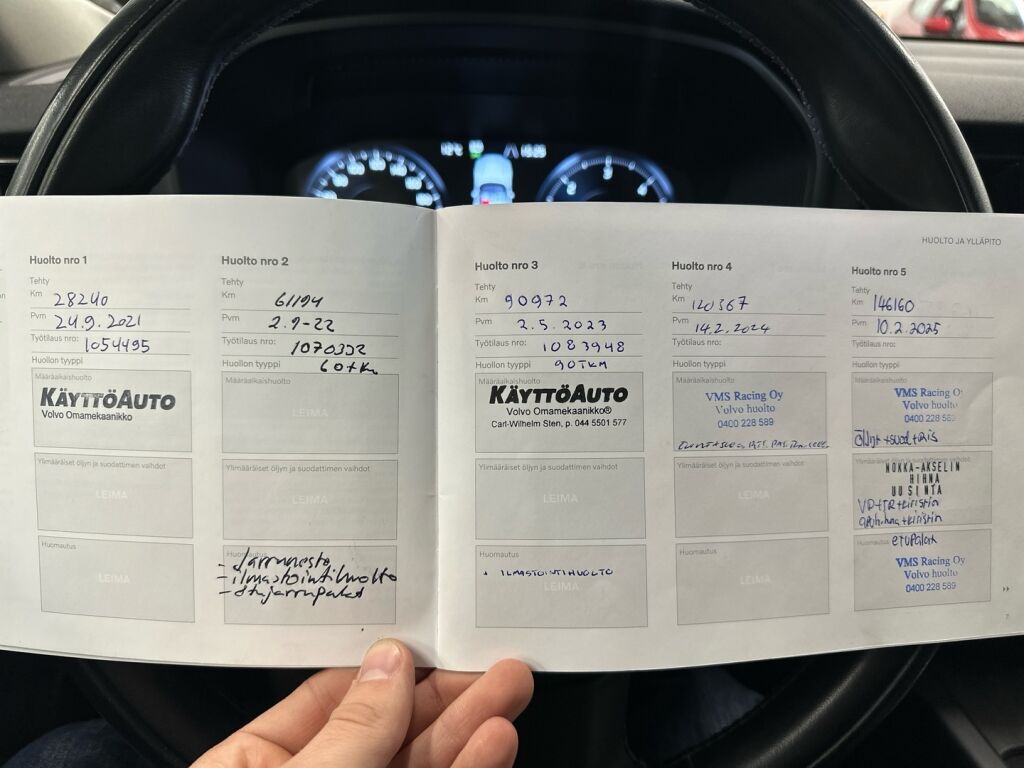 HUOLTO JA YLLÄPITO
Huolto nro 1
Tehty
Km 28240
Pvm 24.9.2021
Työtilaus nro: 1054495
Huollon tyyppi
Määräaikaishuolto
KÄYTTÖAUTO
Volvo Omamekaanikko
Ylimääräiset öljyn ja suodattimen vaihdot
LEIMA
Huomautus
LEIMA
Huolto nro 2
Tehty
Km 61194
Pvm 2.9-22
Työtilaus nro: 1070332
Huollon tyyppi 60tkm
Määräaikaishuolto
LEIMA
Ylimääräiset öljyn ja suodattimen vaihdot
LEIMA
Huomautus
- Jarruneste
- ilmastointihuolto
- etujarrupalat
Huolto nro 3
Tehty
Km 90972
Pvm 2.5.2023
Työtilaus nro: 1083948
Huollon tyyppi 90TKM
Määräaikaishuolto
KÄYTTÖAUTO
Volvo Omamekaanikko®
Carl-Wilhelm Sten, p. 044 5501 577
Ylimääräiset öljyn ja suodattimen vaihdot
LEIMA
Huomautus
+ ILMASTOINTIHUOLTO
LEIMA
Huolto nro 4
Tehty
Km 120367
Pvm 14.2.2024
Työtilaus nro:
Huollon tyyppi
Määräaikaishuolto
VMS Racing Oy
Volvo huolto
0400 228 589
Ylimääräiset öljyn ja suodattimen vaihdot
LEIMA
Huomautus
LEIMA
Huolto nro 5
Tehty
Km 146160
Pvm 10.2.2025
Työtilaus nro:
Huollon tyyppi
Määräaikaishuolto
VMS Racing Oy
Volvo huolto
0400 228 589
Öljyt + suod + RIS
Ylimääräiset öljyn ja suodattimen vaihdot
NOKKA-AKSELIN
HIHNA
UUSINTA
VP+JR+kiristin
apuhihna+kiristin
Huomautus etupalat
VMS Racing Oy
Volvo huolto
0400 228 589